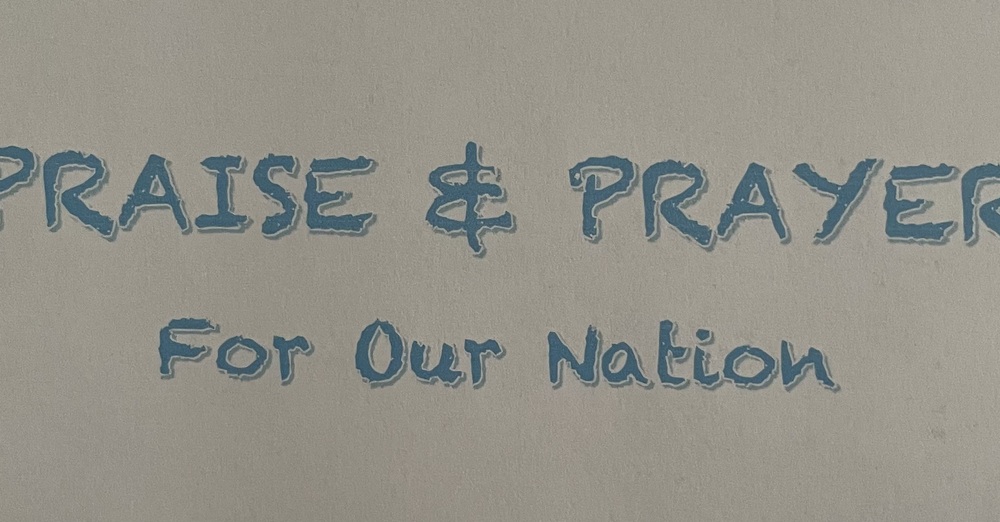 PRAISE & PRAYER
For Our Nation